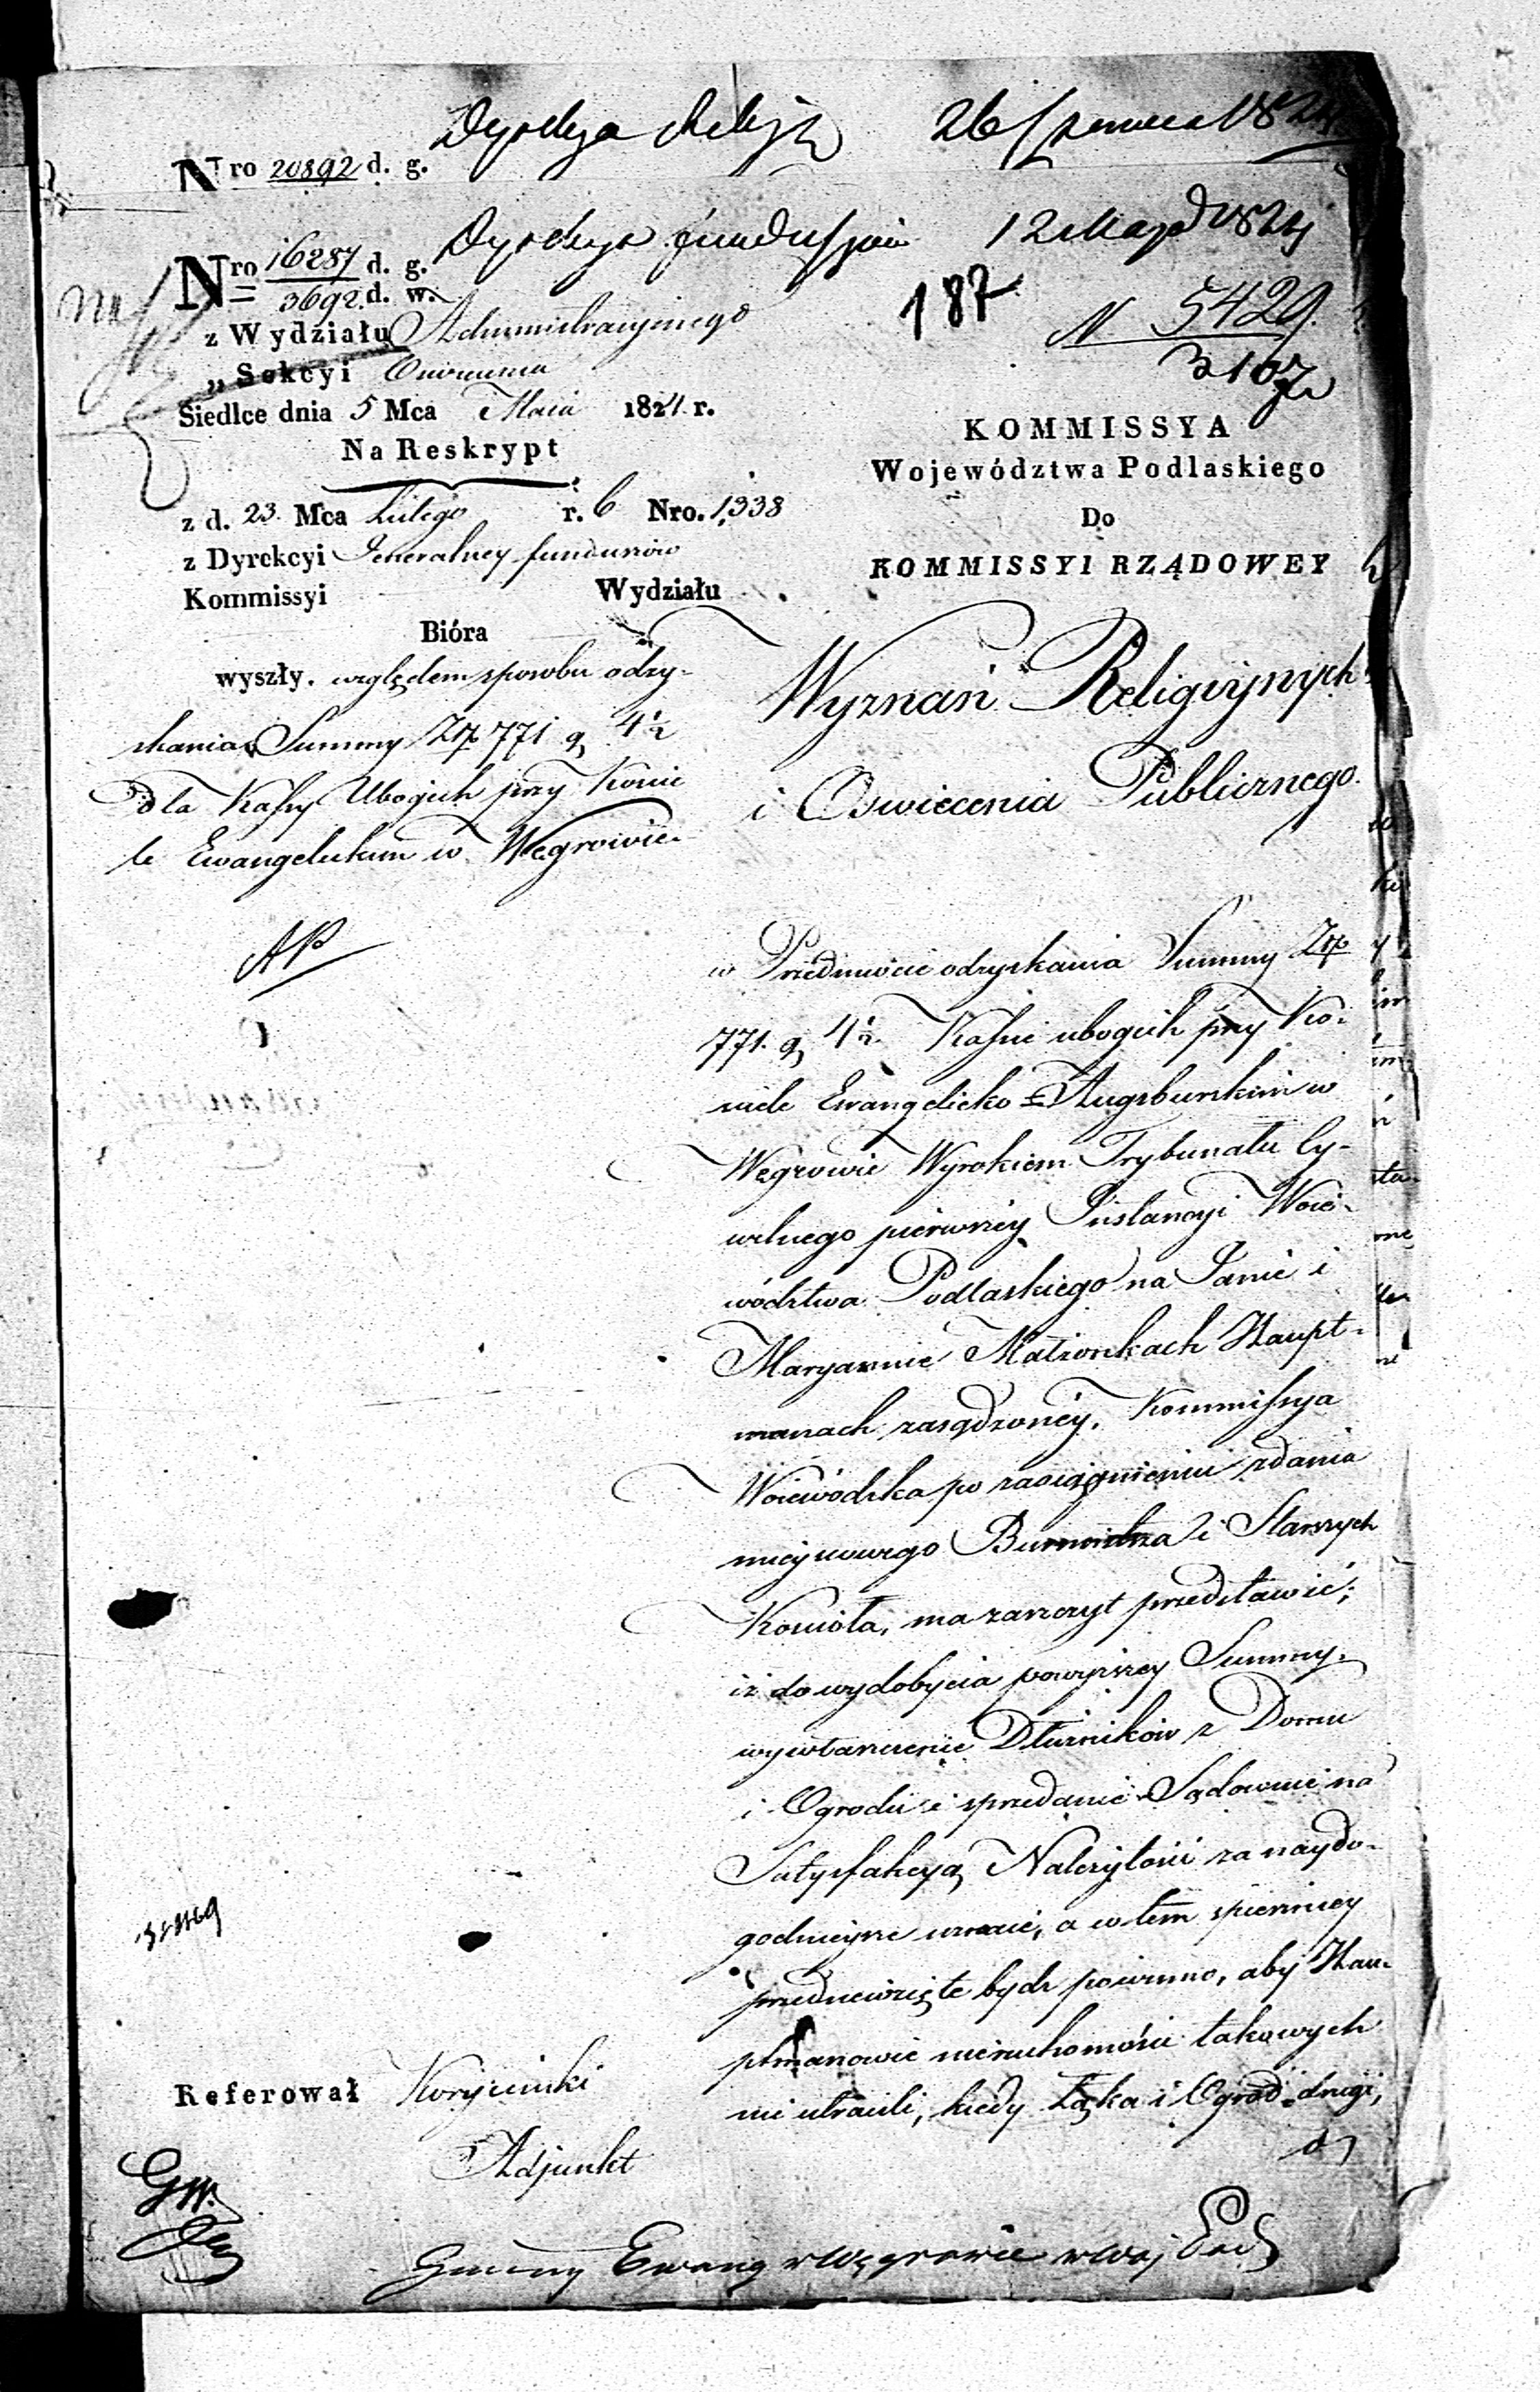 Dyrekcya Religii 26 Czerwca 1824
Nro 20892 d. g.
Dyrekcya funduszów 12 Maja 1824
Nro 16287 d. g.
3692. d. w.
187
N 5429.
3107
z Wydziału Administracyjnego
„ Sekcyi Oswiecenia
Siedlce dnia 5 Mca Maia 1824. r.
Na Reskrypt
z d. 23 Mca Lutego r. b Nro. 1338
z Dyrekcyi Jeneralney funduszów
Kommissyi Wydziału
Bióra
wyszły. względem sposobu odzy-
skania Summy Złp 771 g 4½
dla Kassy Ubogich przy Koście
le Ewangelickim w Węgrowie.
KOMMISSYA
Województwa Podlaskiego
Do
KOMMISSYI RZĄDOWEY
Wyznań Religijnych
i Oswiecenia Publicznego.
w Przedmiocie odzyskania Summy Złp
771. g 4½. Kassie ubogich przy Ko-
sciele Ewangelicko = Augsburskim w
Węgrowie Wyrokiem Trybunału Cy-
wilnego pierwszey Instancyi Woie-
wództwa Podlaskiego na Janie i
Maryannie Małżonkach Haupt-
manach zasądzoney, Kommissya
Woiewódzka po zasiągnieniu zdania
mieyscowego Burmistrza i Starszych
Kościoła, ma zaszczyt przedstawić;
iż do wydobycia powyższey Summy,
wywłaszczenie Dłużników z Domu
i Ogrodu i sprzedanie Sądownie na
Satysfakcyą Należytości za naydo-
godnieysze uznaie, a w tem spieszniey
przedsiewzięte bydź powinno, aby Hau-
ptmanowie nieruchomości takowych
nie utracili, kiedy Łąka i Ogród drugi,
Referował Koryciński
Adjunkt
Gminy Ewang w Węgrowie w Woj Podl